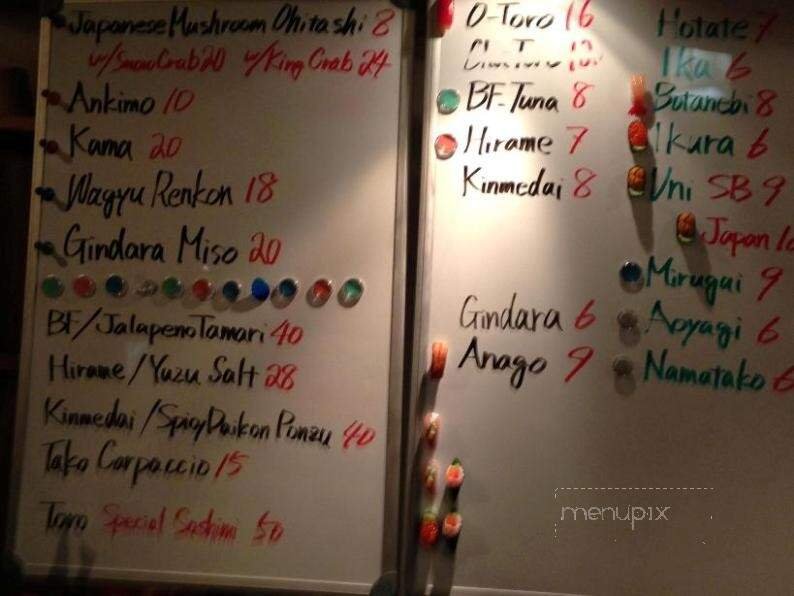 Japanese Mushroom Ohitashi 8
w/Snow Crab 20 w/King Crab 24
Ankimo 10
Kama 20
Wagyu Renkon 18
Gindara Miso 20
BF/Jalapeno Tamari 40
Hirame/Yuzu Salt 28
Kinmedai/Spicy Daikon Ponzu 40
Tako Carpaccio 15
Toro Special Sashimi 50
O-Toro 16
BF-Tuna 8
Hirame 7
Kinmedai 8
Gindara 6
Anago 9
Hotate 7
Ika 6
Botanebi 8
Ikura 6
Uni SB 9
Japan
Mirugai 9
Aoyagi 6
Namatako 6
menupix